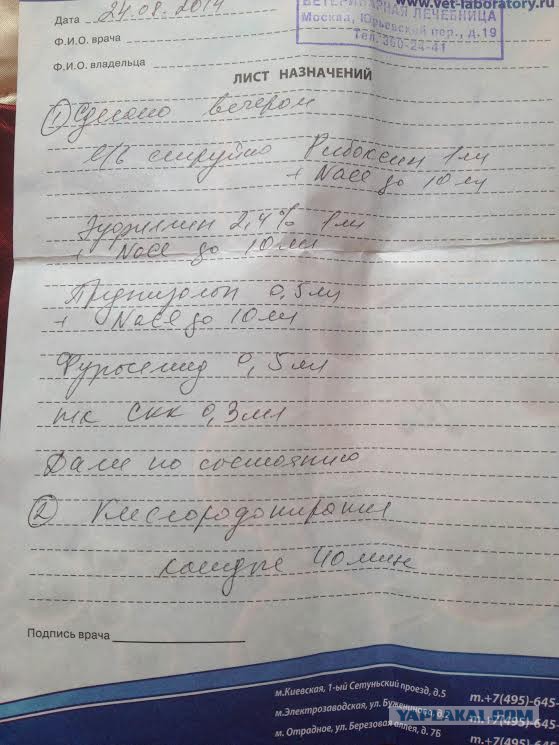 www.vet-laboratory.ru
ВЕТЕРИНАРНАЯ ЛЕЧЕБНИЦА
Москва, Юрьевский пер., д.19
Тел. 360-24-41
Дата 24.08.2014
Ф.И.О. врача
Ф.И.О. владельца
ЛИСТ НАЗНАЧЕНИЙ
① Сделано вечером
в/в струйно Рибоксин 1 мл
+ NaCl до 10 мл
Эуфиллин 2,4% 1 мл
+ NaCl до 10 мл
Преднизолон 0,5 мл
+ NaCl до 10 мл
Фуросемид 0,5 мл
СКК 0,3 мл
Далее по состоянию
② Кислородотерапия
каждые 40 мин
Подпись врача
м.Киевская, 1-ый Сетуньский проезд, д.5
м.+7(495)-645-
м.Электрозаводская, ул. Буженинова, д.
м. Отрадное, ул. Березовая аллея, д. 7Б
м.+7(495)-645-
YAPLAKAL.COM